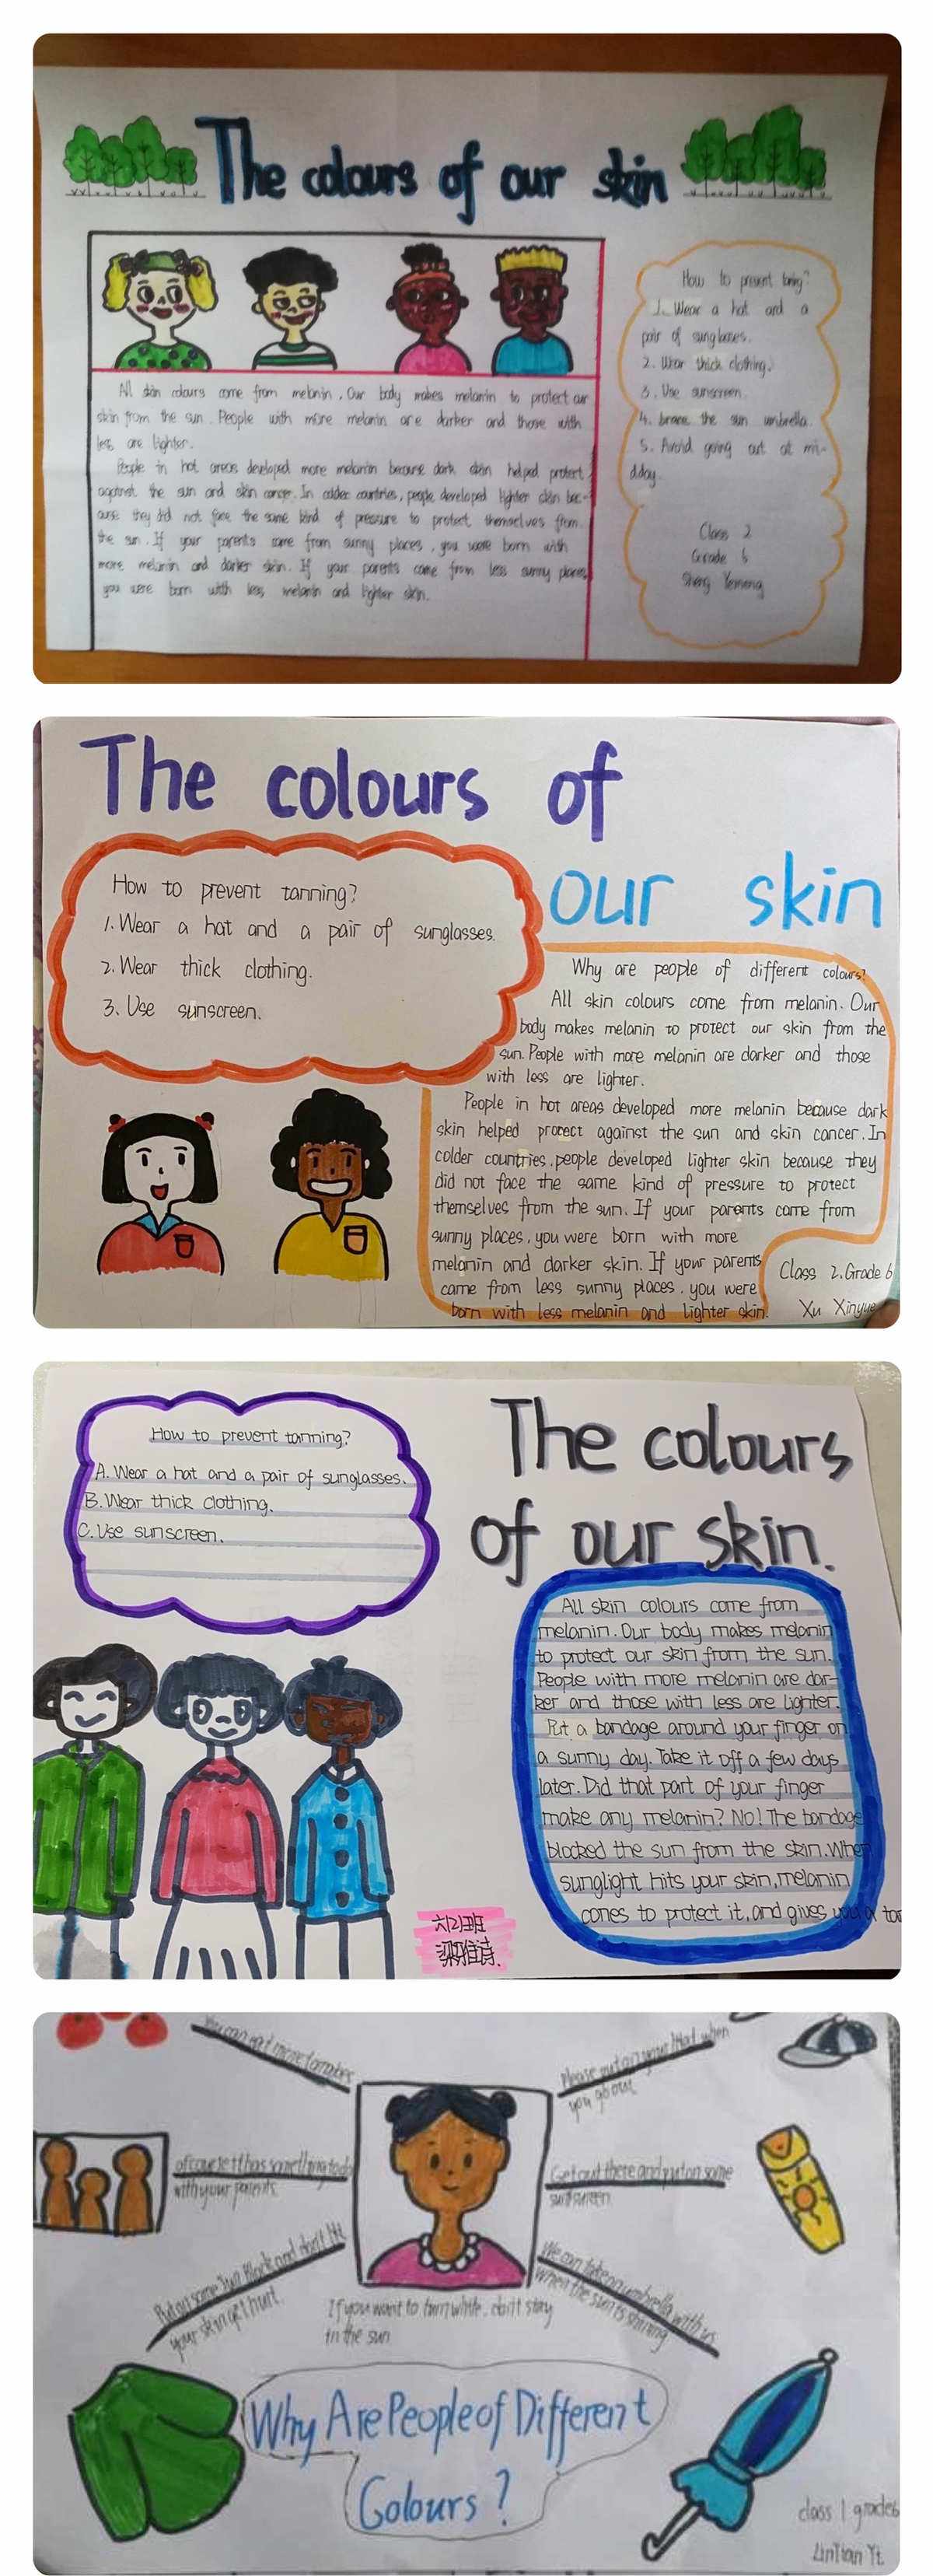 The colours of our skin
All skin colours come from melanin. Our body makes melanin to protect our
skin from the sun. People with more melanin are darker and those with
less are lighter.
People in hot areas developed more melanin because dark skin helped protect
against the sun and skin cancer. In colder countries, people developed lighter skin bec-
ause they did not face the same kind of pressure to protect themselves from
the sun. If your parents came from sunny places, you were born with
more melanin and darker skin. If your parents came from less sunny places,
you were born with less melanin and lighter skin.
How to prevent
1. Wear a hat and a
pair of sunglasses.
2. Wear thick clothing.
3. Use sunscreen.
4. the sun umbrella.
5. Avoid going out at mi-
dday.
Class 2
Grade 6
Sheng
The colours of
our skin
How to prevent tanning?
1. Wear a hat and a pair of sunglasses.
2. Wear thick clothing.
3. Use sunscreen.
Why are people of different colours?
All skin colours come from melanin. Our
body makes melanin to protect our skin from the
sun. People with more melanin are darker and those
with less are lighter.
People in hot areas developed more melanin because dark
skin helped protect against the sun and skin cancer. In
colder countries, people developed lighter skin because they
did not face the same kind of pressure to protect
themselves from the sun. If your parents came from
sunny places, you were born with more
melanin and darker skin. If your parents
came from less sunny places, you were
born with less melanin and lighter skin.
Class 2, Grade 6
Xu Xinyue
How to prevent tanning?
A. Wear a hat and a pair of sunglasses.
B. Wear thick clothing.
C. Use sunscreen.
The colours
of our skin.
All skin colours come from
melanin. Our body makes melanin
to protect our skin from the sun.
People with more melanin are dar-
ker and those with less are lighter.
Put a bandage around your finger on
a sunny day. Take it off a few days
later. Did that part of your finger
make any melanin? No! The bandage
blocked the sun from the skin. When
sunlight hits your skin, melanin
comes to protect it, and gives you a tan
六(2)班
梁雅诗.
You can eat more tomatoes
Please put on your hat when
you go out
of course it has something to do
with your parents
Get out there and put on some
sunscreen
Put on some sun block and don't let
your skin get hurt
We can take an umbrella with us
when the sun is shining
If you want to turn white, don't stay
in the sun
Why Are People of Different
Colours?
class 1 grade6
LinTian Yi